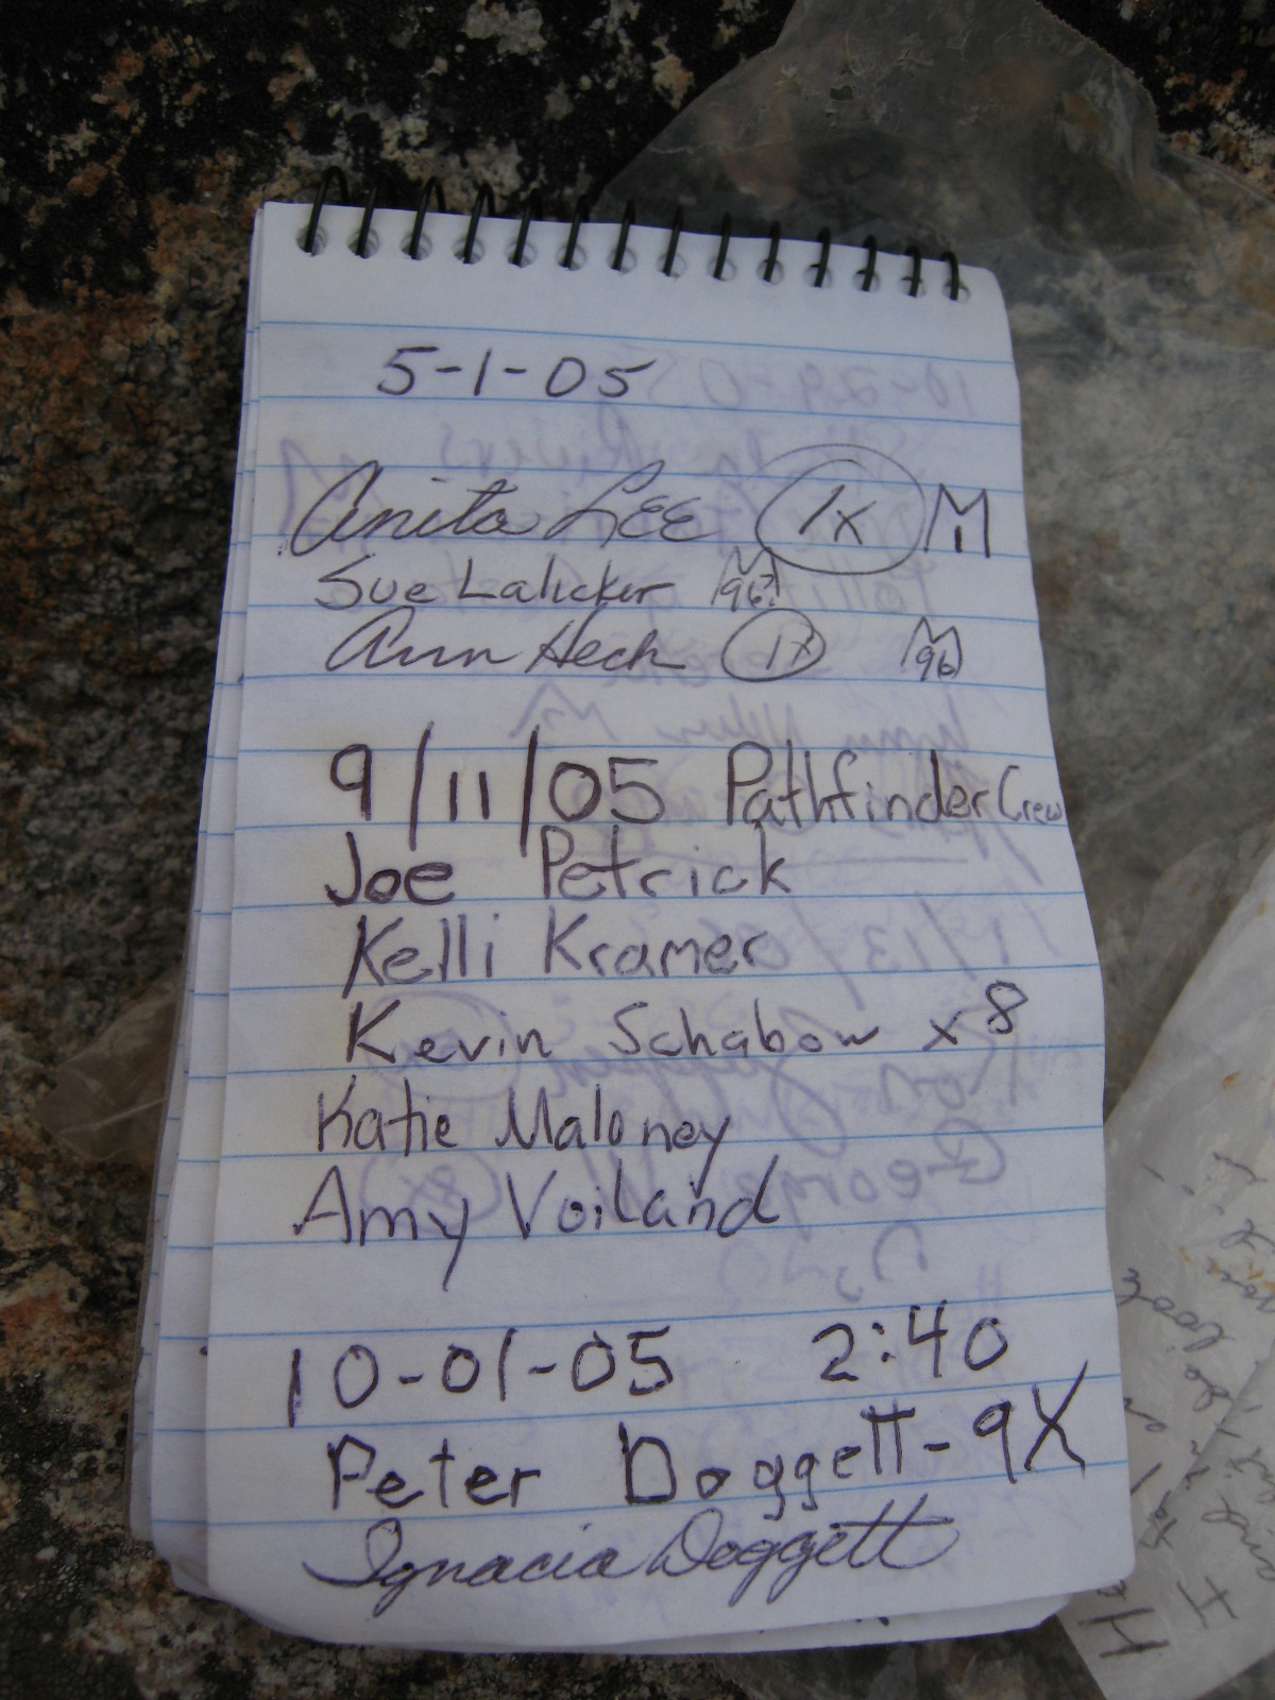 5-1-05
Anita LEE 1x M
Sue Lalicker 96
Ann Hech 1x 96
9/11/05 Pathfinder Crew
Joe Petrick
Kelli Kramer
Kevin Schabow x8
Katie Maloney
Amy Voiland
10-01-05 2:40
Peter Doggett-9X
Ignacia Doggett